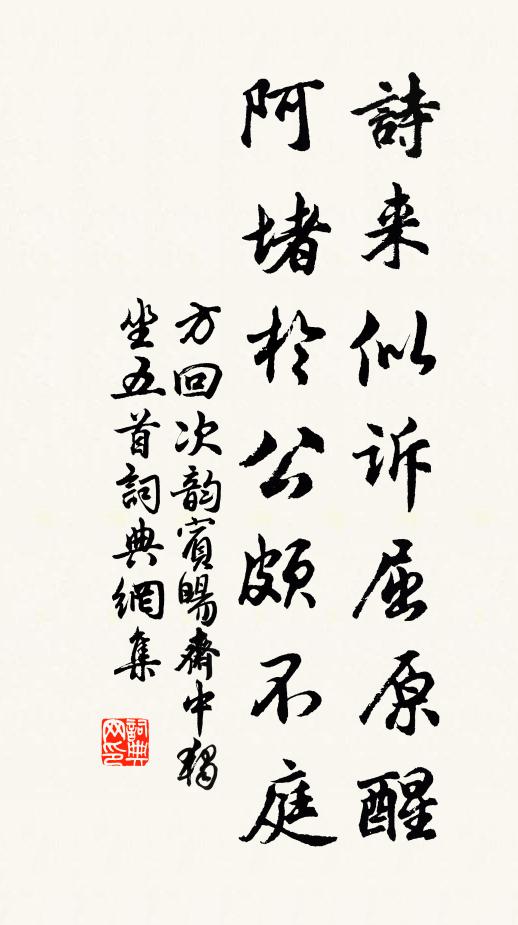 詩来似诉屈原醒
阿堵於公頗不庭
方回次韵賓暘齋中獨
坐五首詞典網集
詞典
网印